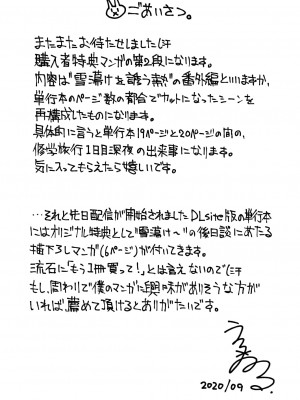 ごあいさつ。
またまたお待たせしました(汗
購入者特典マンガの第2段になります。
内容は"雪蕩けを誘う熱"の番外編といいますか、
単行本のページ数の都合でカットになったシーンを
再構成したものになります。
具体的に言うと単行本19ページと20ページの間の、
修学旅行1日目深夜の出来事になります。
気に入ってもらえたら嬉しいです。
…それと先日配信が開始されましたDLsite版の単行本
にはオリジナル特典として"雪蕩け〜"の後日談にあたる
描下ろしマンガ(6ページ)が付いてきます。
流石に「もう1冊買って!」とは言えないので(汗
もし、周りで僕のマンガに興味がありそうな方が
いれば、薦めて頂けるとありがたいです。
2020/09